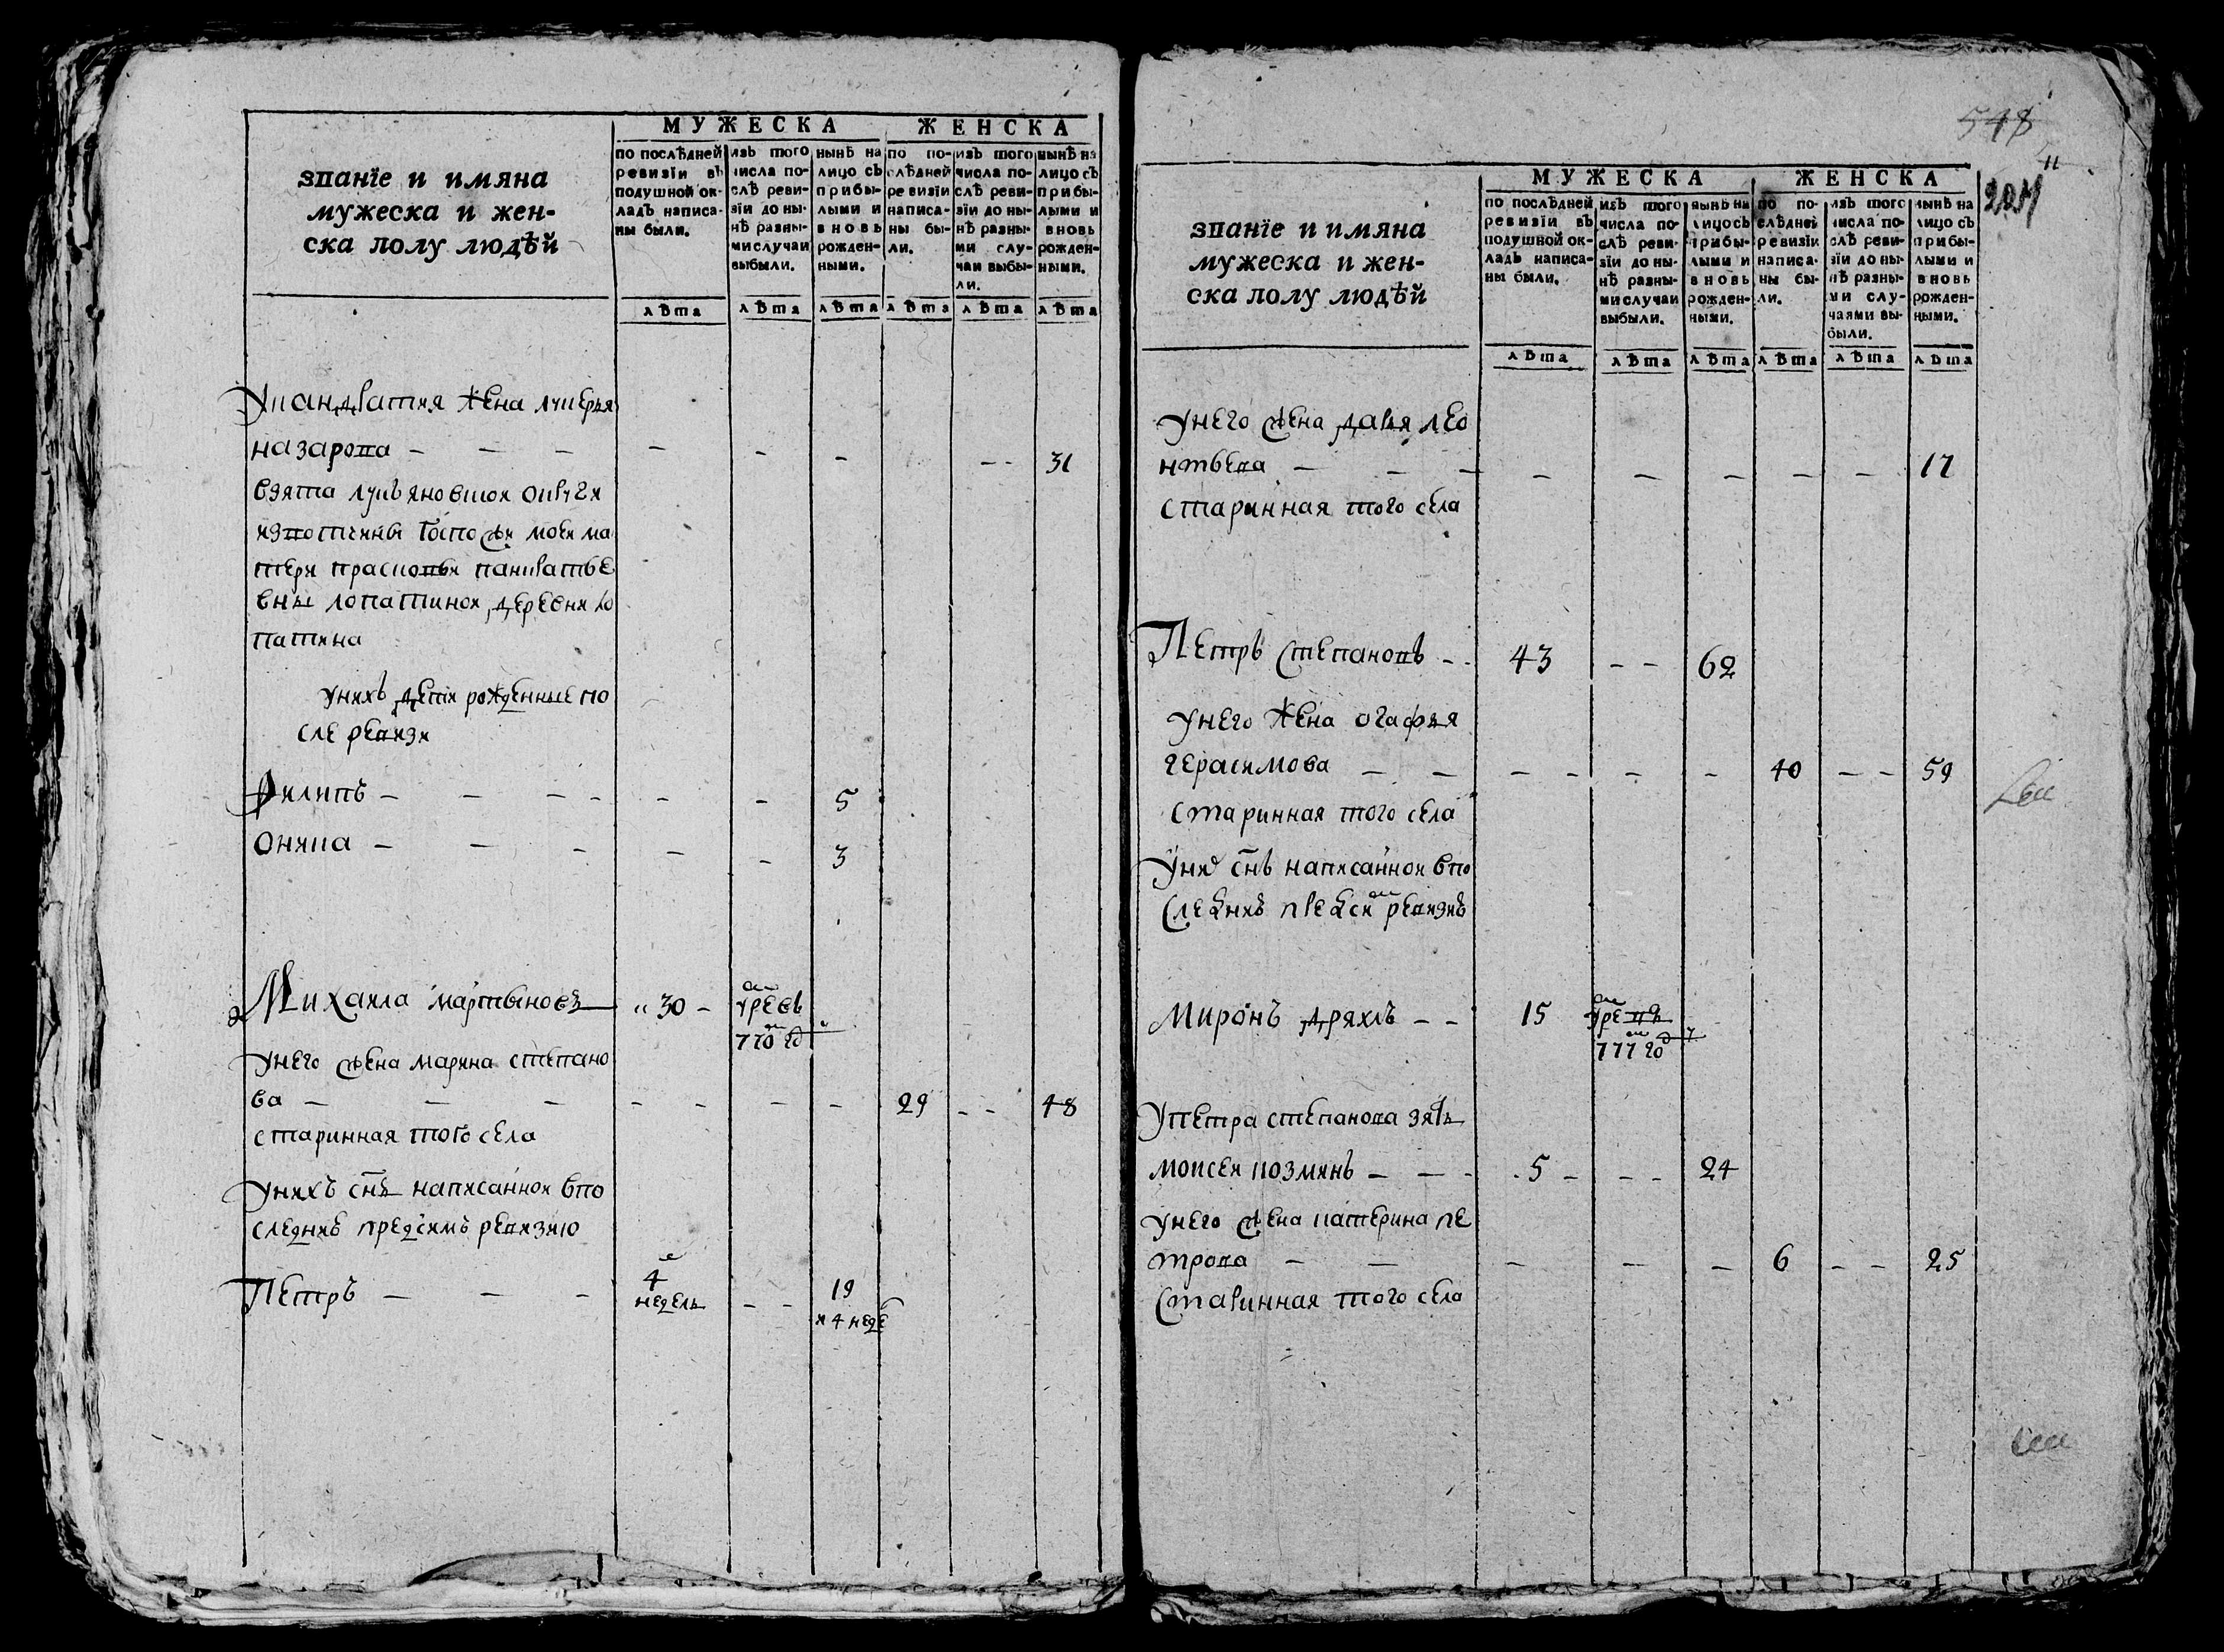 МУЖЕСКА ЖЕНСКА
званїе и имяна
мужеска и жен-
ска полу людѣй
по послѣдней
ревизїи въ
подушной ок-
ладъ написа-
ны были.
изъ того
числа по-
слѣ реви-
зїи до ны-
нѣ разны-
ми случаи
выбыли.
нынѣ на
лицо съ
прибы-
лыми и
вновь
рожден-
ными.
по по-
слѣдней
ревизїи
написа-
ны бы-
ли.
изъ того
числа по-
слѣ реви-
зїи до ны-
нѣ разны-
ми слу-
чаи выбы-
ли.
нынѣ на
лицо съ
прибы-
лыми и
вновь
рожден-
ными.
лѣта лѣта лѣта лѣта лѣта лѣта
жена лукерья
назарова - - - - - - -- 31
взята
извотчины госпожи моеи ма
тери прасковьи
вны лопатинои деревни ло
патина
унихъ дети рожденные по
сле ревизи
Филипъ - - - - - - 5
Оника - - - - - 3
Михаила мартыновъ 30 - умре въ
770 го
унего жена марина степано
ва - - - - - - - 29 - - 48
старинная того села
унихъ снъ написаннои впо
следнию предсимъ ревизию
Петръ - - - 4
недель - - 19
и 4 неде
548
11
204
МУЖЕСКА ЖЕНСКА
званїе и имяна
мужеска и жен-
ска полу людѣй
по послѣдней
ревизїи въ
подушной ок-
ладъ написа-
ны были.
изъ того
числа по-
слѣ реви-
зїи до ны-
нѣ разны-
ми случаи
выбыли.
нынѣ на
лицо съ
прибы-
лыми и
вновь
рожден-
ными.
по по-
слѣдней
ревизїи
написа-
ны бы-
ли.
изъ того
числа по-
слѣ реви-
зїи до ны-
нѣ разны-
ми слу-
чаями вы-
были.
нынѣ на
лицо съ
прибы-
лыми и
вновь
рожден-
ными.
лѣта лѣта лѣта лѣта лѣта лѣта
унего жена дарья лео
нтьева - - - - - - - - 17
старинная того села
Петръ Степановъ - - 43 - - 62
унего жена огафья
герасимова - - - - - - 40 - - 59
старинная того села
у них снъ написаннои впо
ревизию
Миронъ дряхлъ - - 15 умре въ
777 го
упетра степанова зять
моисеи козминъ - - - 5 - - - 24
унего жена катерина пе
трова - - - - - 6 - - 25
старинная того села